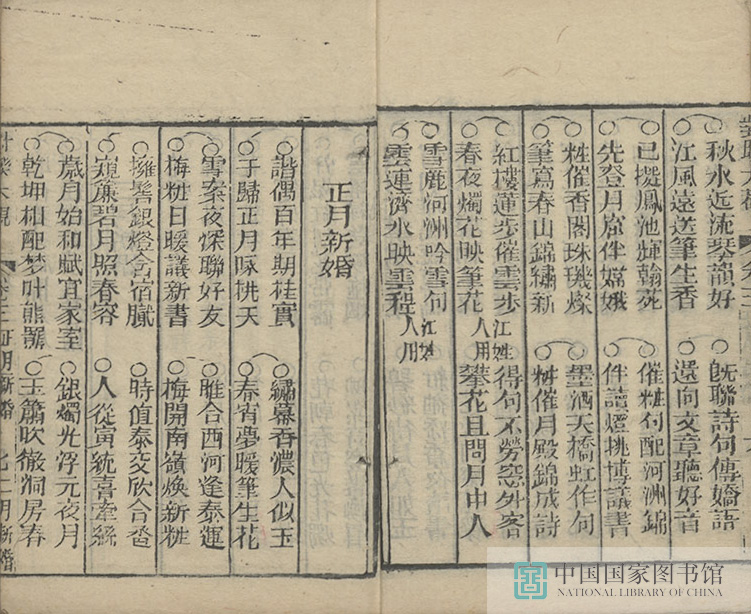 秋水近流琴韻好
江風遠送筆生香
已擬鳳池輝翰苑
先登月窟伴嫦娥
粧催香閣珠璣燦
筆寫春山錦繡新
紅樓蓮步催雲步 江姓
春夜燭花映筆花 人用
雪麗河洲吟雪句 江姓
雲連濟水映雲程 人用
既聯詩句傳嬌語
還向文章聽好音
催粧句配河洲錦
伴讀燈挑博議書
墨洒天橋虹作句
粧催月殿錦成詩
得句不勞窓外客
攀花且問月中人
正月新婚
諧偶百年期桂實
于歸正月啄桃夭
雪案夜深聯好友
梅粧日暖議新書
擁髻銀燈合宿臘
窺簾碧月照春容
歲月始和賦宜家室
乾坤相配梦叶熊羆
繡幕香濃人似玉
春宵夢暖筆生花
雎合西河逢泰運
梅開南嶺煥新粧
時值泰交欣合巹
人從寅統喜牽絲
銀燭光浮元夜月
玉簫吹徹洞房春
卷三 正月新婚 二月新婚
中国国家图书馆
NATIONAL LIBRARY OF CHINA